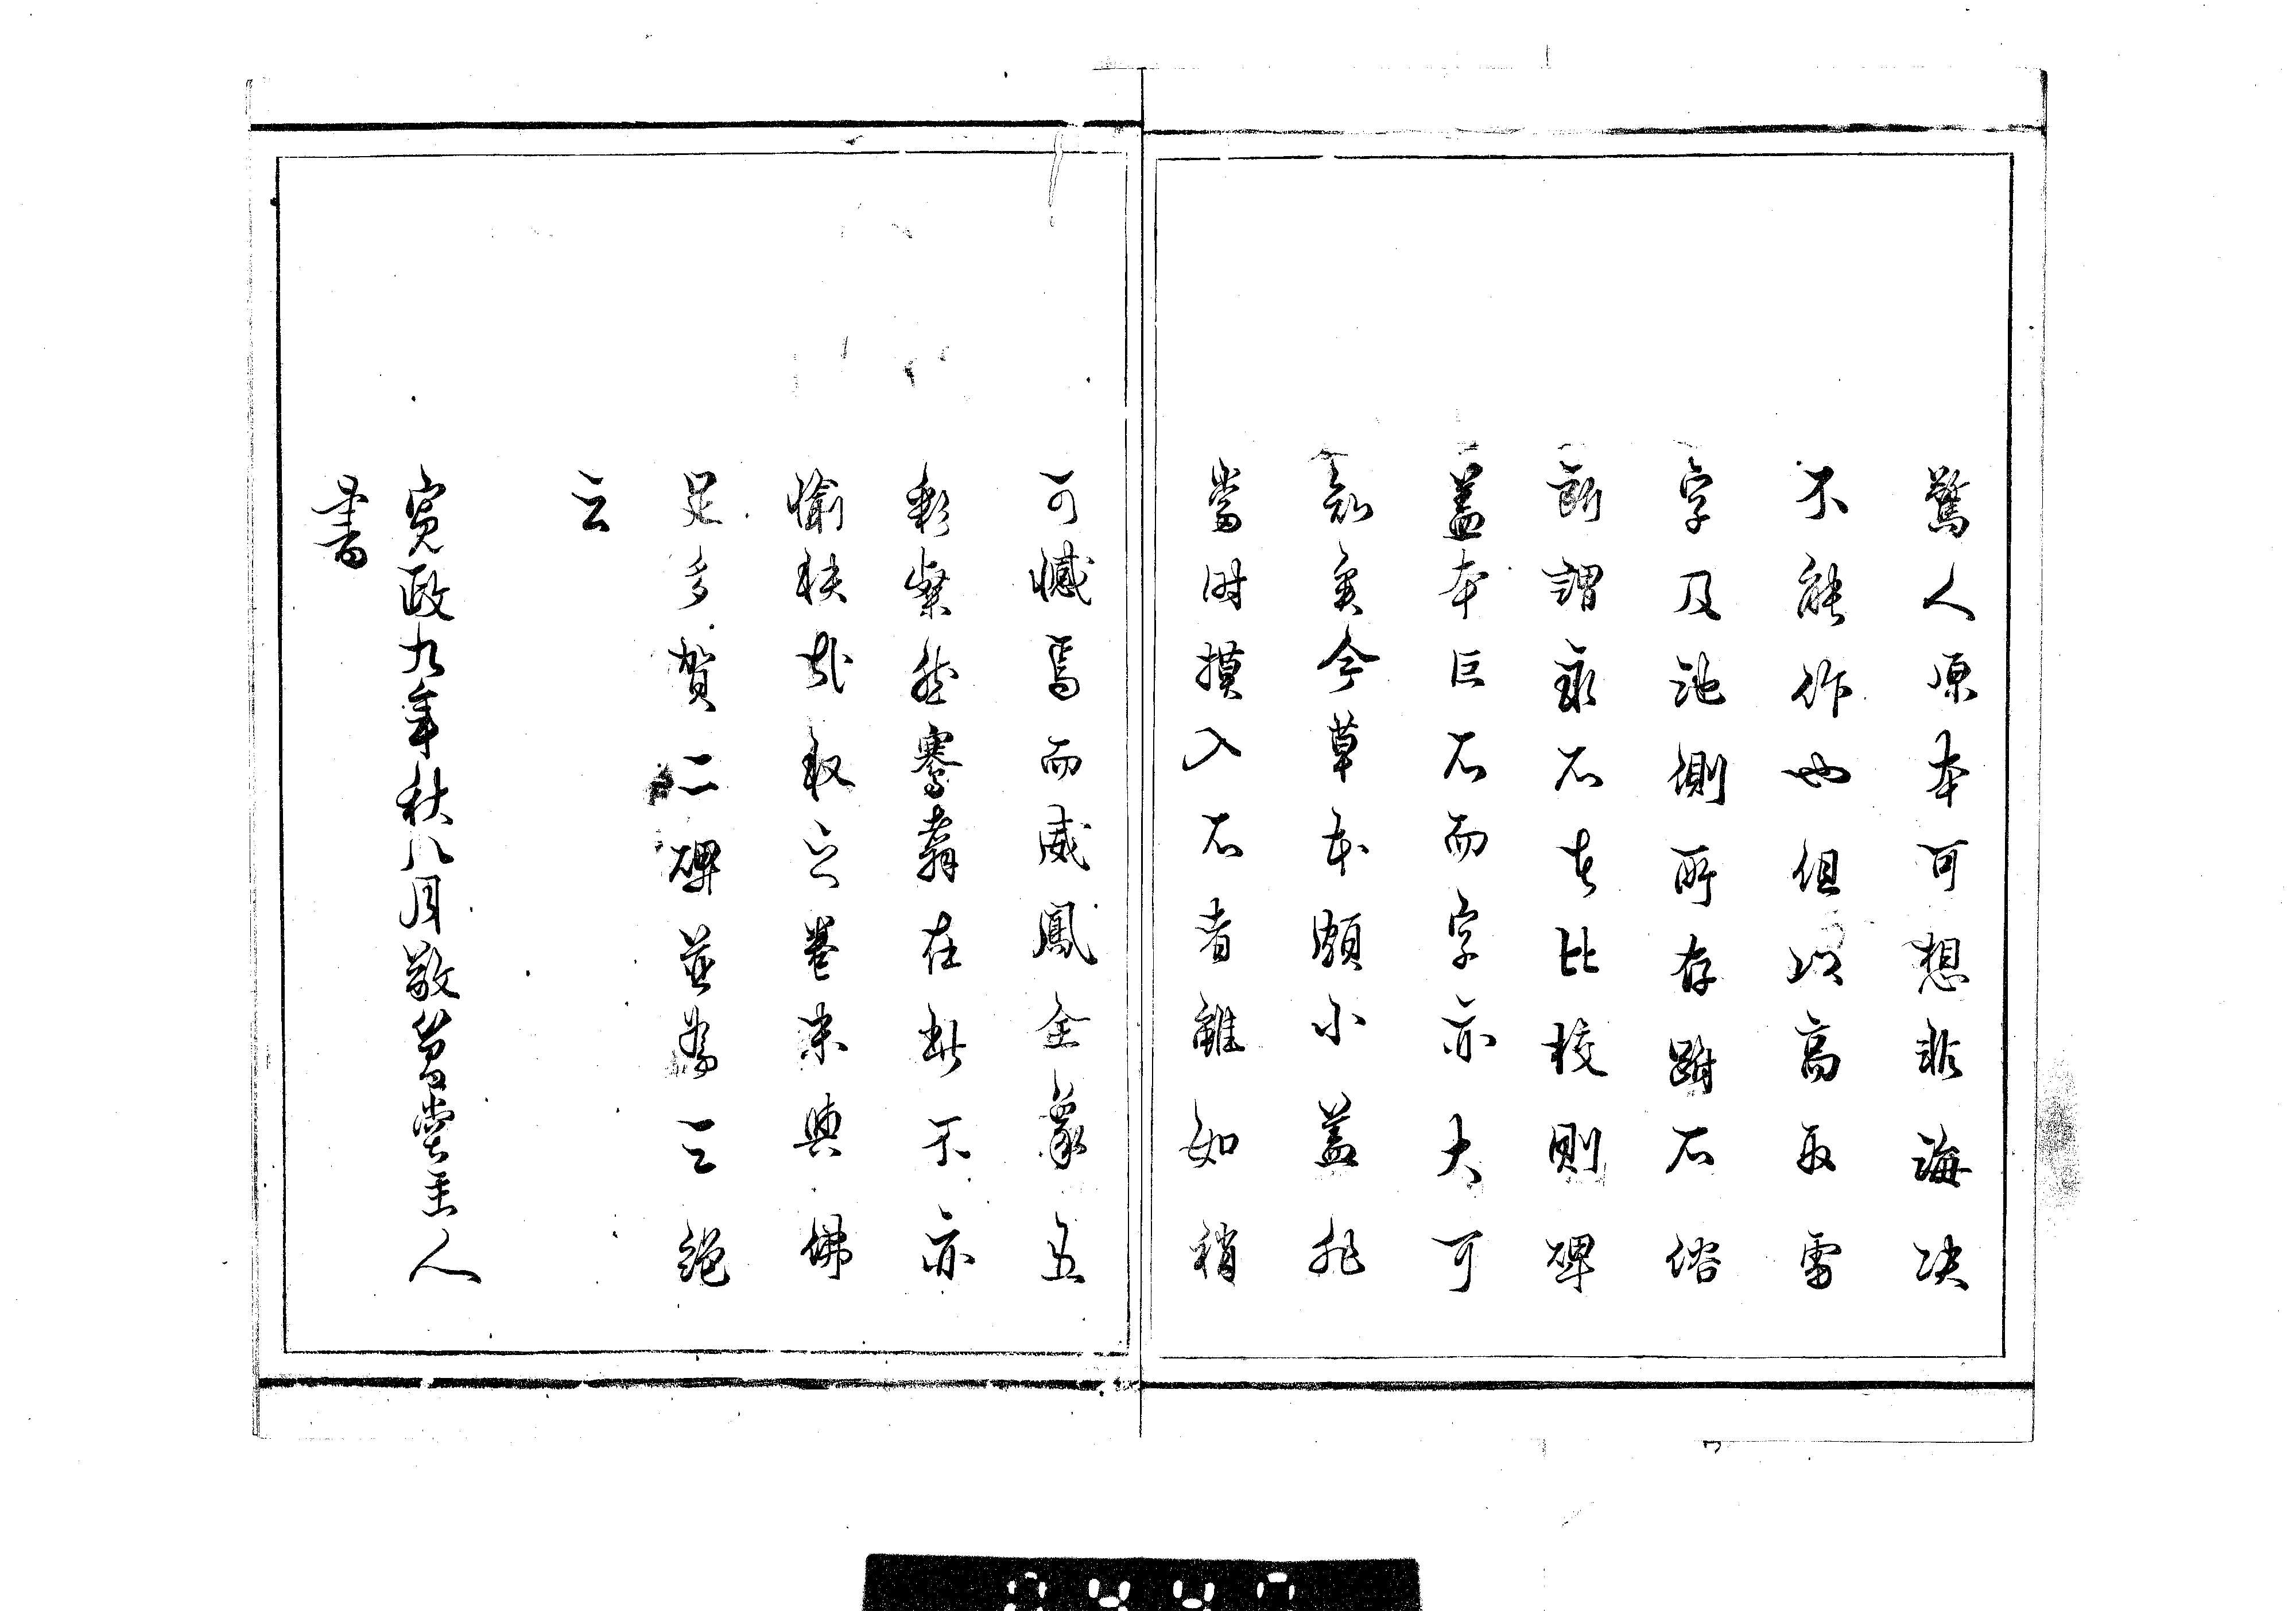 驚人原本可想非海決
不能作也但以高取雪
字及池側所存趺石俗
所謂永石者比校則碑
蓋本巨石而字亦大可
知矣今草本頗小蓋非
當時摸入石者雖如稍
可憾焉而威鳳全象五
彩粲然騫翥在斯不亦
愉快哉取之卷末與佛
足多賀二碑並為三絶
云
寛政九年秋八月敬曽堂主人
書